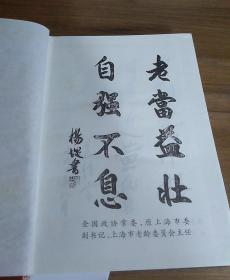 老當益壮
自强不息
杨堤書
全国政协常委、原上海市委
副书记、上海市老龄委员会主任